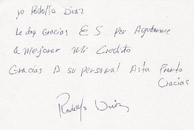 yo Rodolfo Diaz
Le doy Gracias E S Por Ayudarme
a mejorar mi Credito
Gracias A su personal Asta Pronto
Gracias
Rodolfo